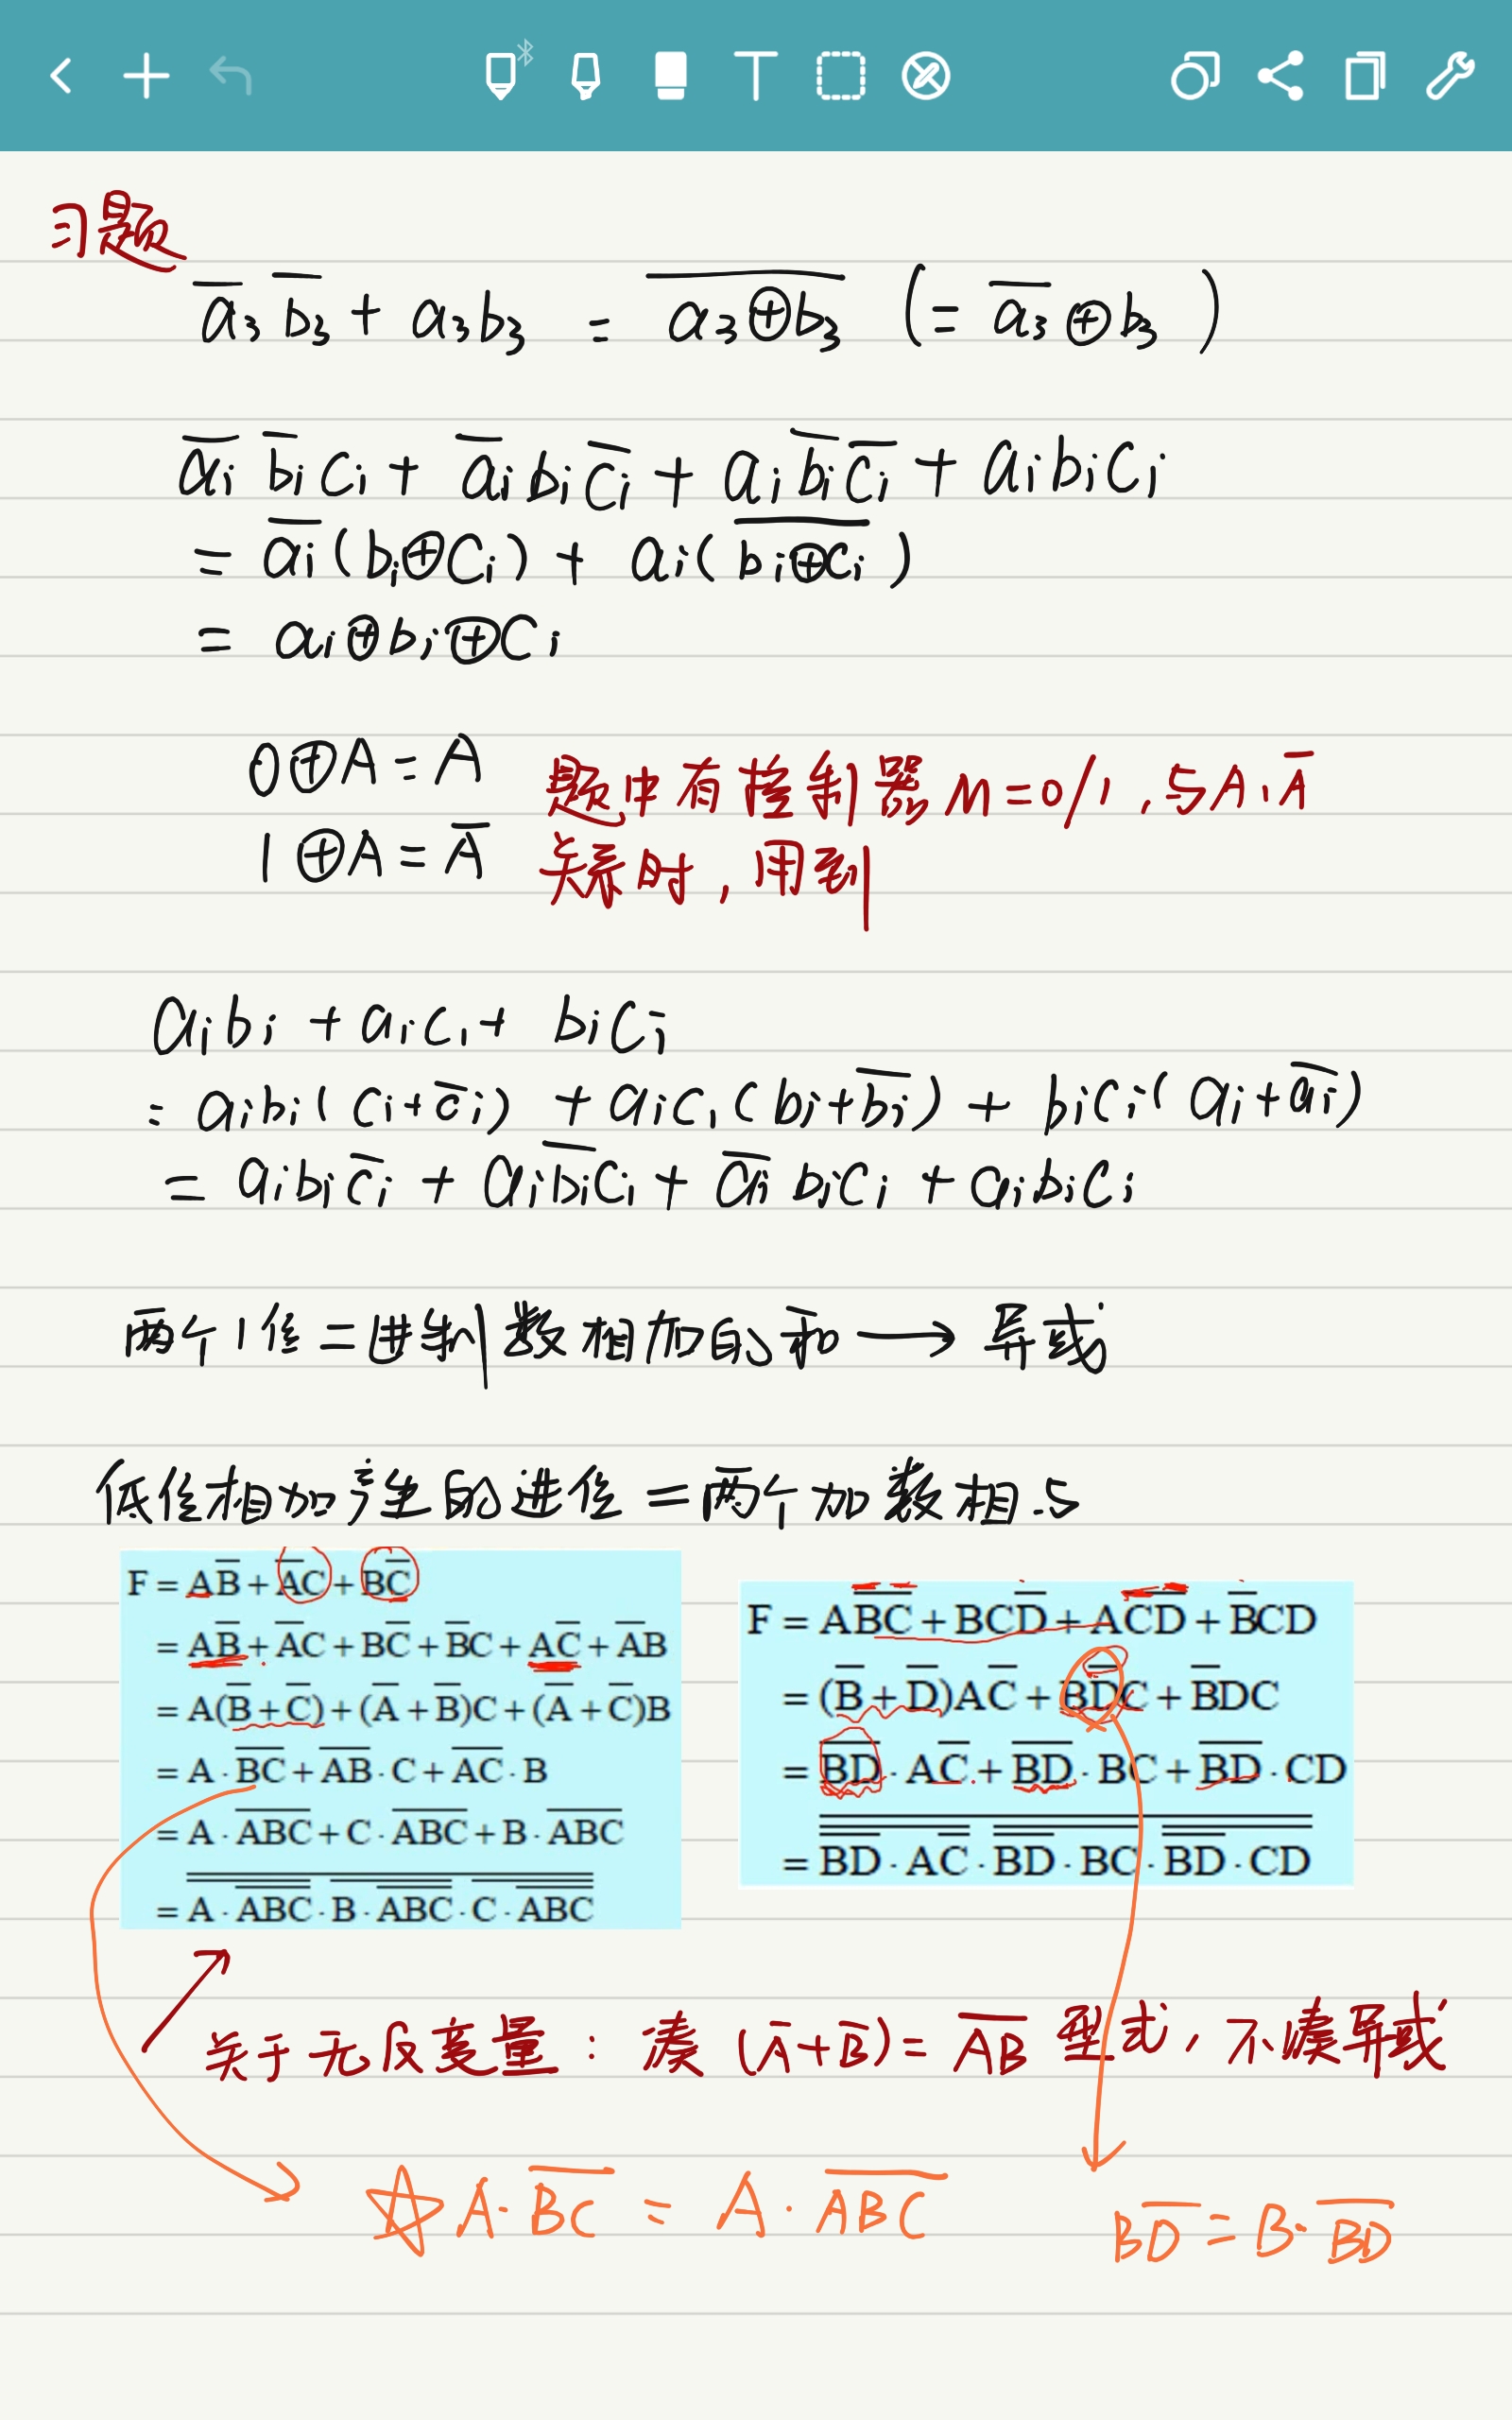 习题
a̅₃ b̅₃ + a₃b₃ = \overline{a₃⊕b₃} (= a̅₃⊕b₃)
a̅ᵢ b̅ᵢ cᵢ + a̅ᵢ bᵢ c̅ᵢ + aᵢ b̅ᵢ c̅ᵢ + aᵢbᵢcᵢ
= a̅ᵢ(bᵢ⊕cᵢ) + aᵢ(\overline{bᵢ⊕cᵢ})
= aᵢ⊕bᵢ⊕cᵢ
0⊕A = A
1⊕A = A̅
题中有控制器M=0/1,与A,A̅
关系时,用到
aᵢbᵢ + aᵢcᵢ + bᵢcᵢ
= aᵢbᵢ(cᵢ+c̅ᵢ) + aᵢcᵢ(bᵢ+b̅ᵢ) + bᵢcᵢ(aᵢ+a̅ᵢ)
= aᵢbᵢc̅ᵢ + aᵢb̅ᵢcᵢ + a̅ᵢbᵢcᵢ + aᵢbᵢcᵢ
两个1位二进制数相加的和→异或
低位相加产生的进位=两个加数相与
F = AB̅ + A̅C + BC̅
= AB̅ + A̅C + BC̅ + B̅C + AC̅ + A̅B
= A(B̅ + C̅) + (A̅ + B̅)C + (A̅ + C̅)B
= A · \overline{BC} + \overline{AB} · C + \overline{AC} · B
= A · \overline{ABC} + C · \overline{ABC} + B · \overline{ABC}
= \overline{\overline{A · \overline{ABC}} · \overline{B · \overline{ABC}} · \overline{C · \overline{ABC}}}
F = AB̅C̅ + BCD̅ + AC̅D̅ + B̅CD
= (B̅ + D̅)AC̅ + BD̅C + B̅DC
= \overline{BD} · AC̅ + \overline{BD} · BC + \overline{BD} · CD
= \overline{\overline{\overline{BD} · AC̅} · \overline{\overline{BD} · BC} · \overline{\overline{BD} · CD}}
关于无反变量:凑(A̅+B̅)=\overline{AB} 型式,不凑异或
☆A·\overline{BC} = A·\overline{ABC}
BD̅ = B·\overline{BD}